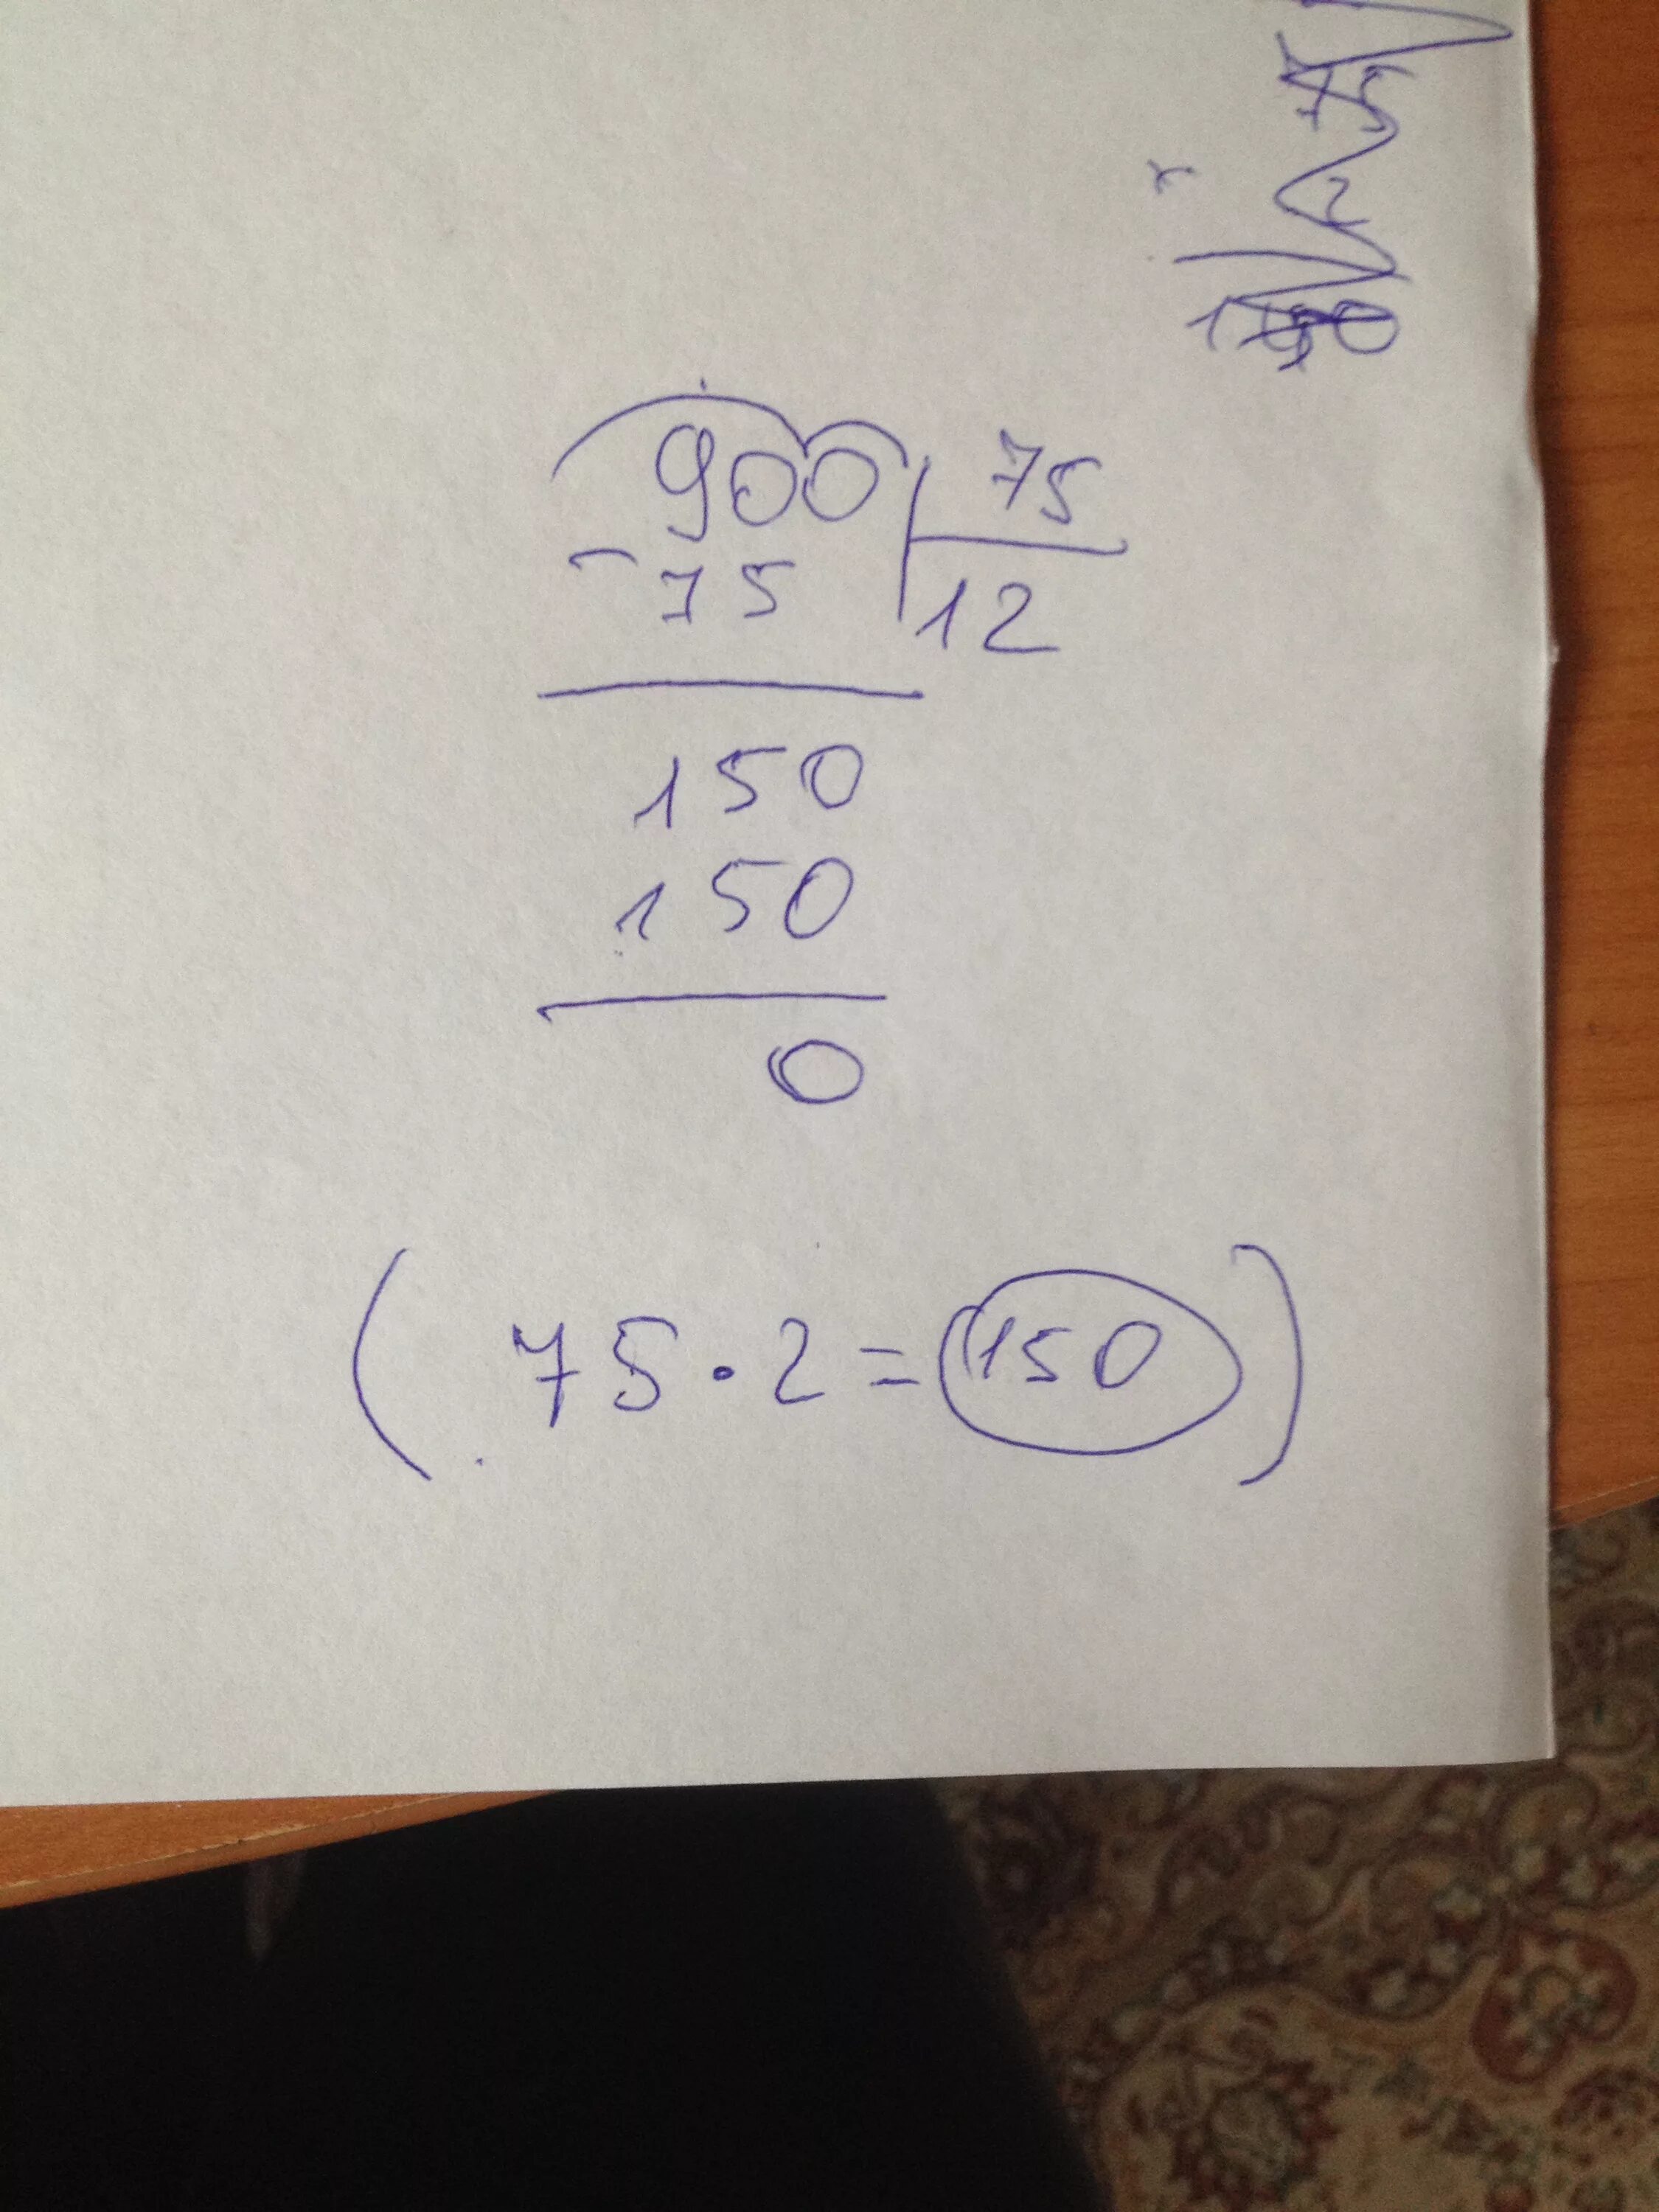 75
× 2
150
900 | 75
- 75 12
150
150
0
( 75 · 2 = 150 )